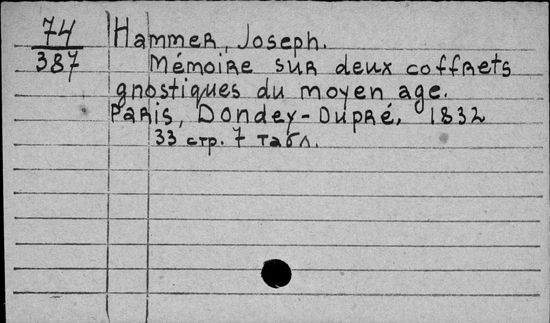 74
387
Hammer, Joseph.
Mémoire sur deux coffrets
gnostiques du moyen age.
Paris, Dondey-Dupré, 1832
33 стр. 7 табл.